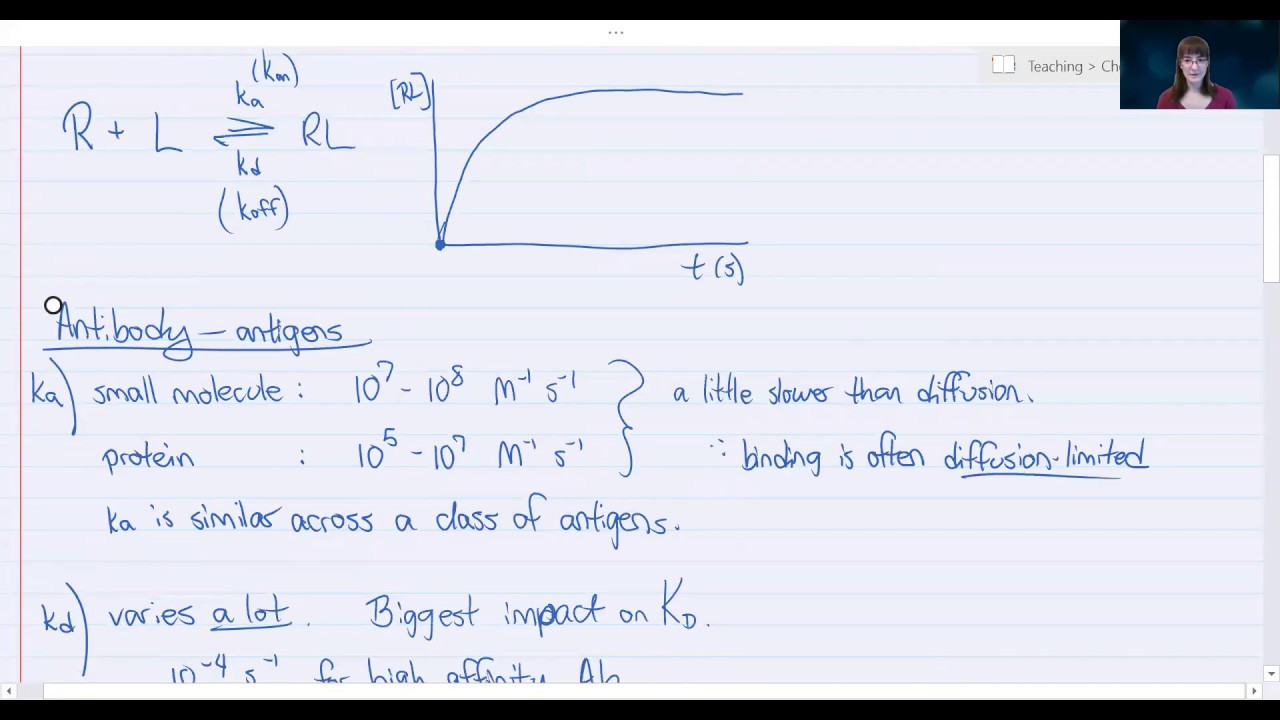 Teaching > Ch
(kon)
ka
R + L ⇌ RL
kd
(koff)
[RL]
t (s)
Antibody – antigens
ka) small molecule : 10⁷ – 10⁸ M⁻¹ s⁻¹ } a little slower than diffusion.
protein : 10⁵ – 10⁷ M⁻¹ s⁻¹ } ∵ binding is often diffusion-limited
ka is similar across a class of antigens.
kd) varies a lot. Biggest impact on KD.
10⁻⁴ s⁻¹ for high affinity Ab